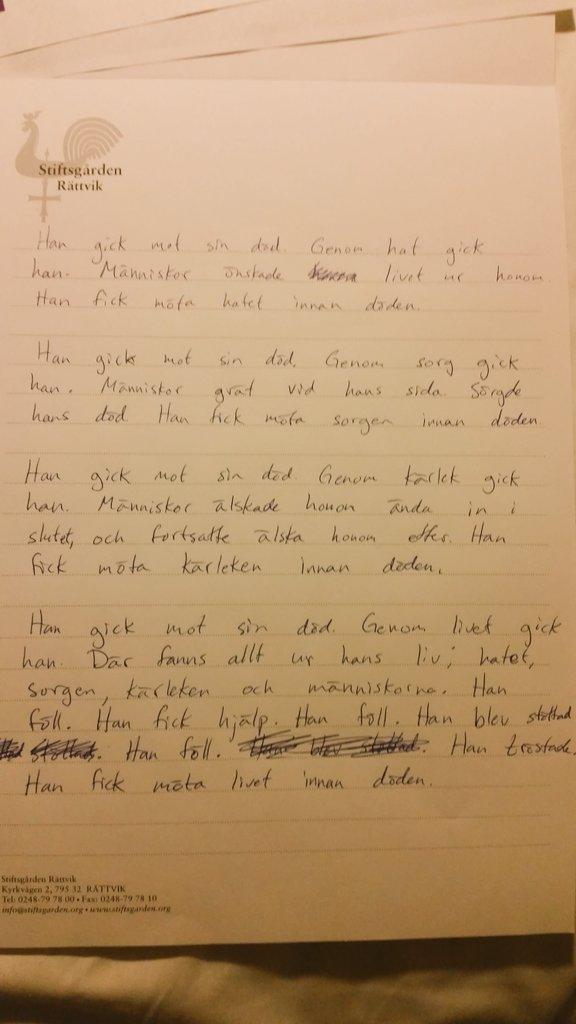 Stiftsgården
Rättvik
Han gick mot sin död. Genom hat gick
han. Människor önskade livet ur honom.
Han fick möta hatet innan döden.
Han gick mot sin död. Genom sorg gick
han. Människor grät vid hans sida. Sörgde
hans död Han fick möta sorgen innan döden
Han gick mot sin död. Genom kärlek gick
han. Människor älskade honom ända in i
slutet, och fortsatte älska honom efter. Han
fick möta kärleken innan döden.
Han gick mot sin död. Genom livet gick
han. Där fanns allt ur hans liv; hatet,
sorgen, kärleken och människorna. Han
föll. Han fick hjälp. Han föll. Han blev stöttad
Han föll. Han tröstade.
Han fick möta livet innan döden.
Stiftsgården Rättvik
Kyrkvägen 2, 795 32 RÄTTVIK
Tel: 0248-79 78 00 • Fax: 0248-79 78 10
info@stiftsgarden.org • www.stiftsgarden.org